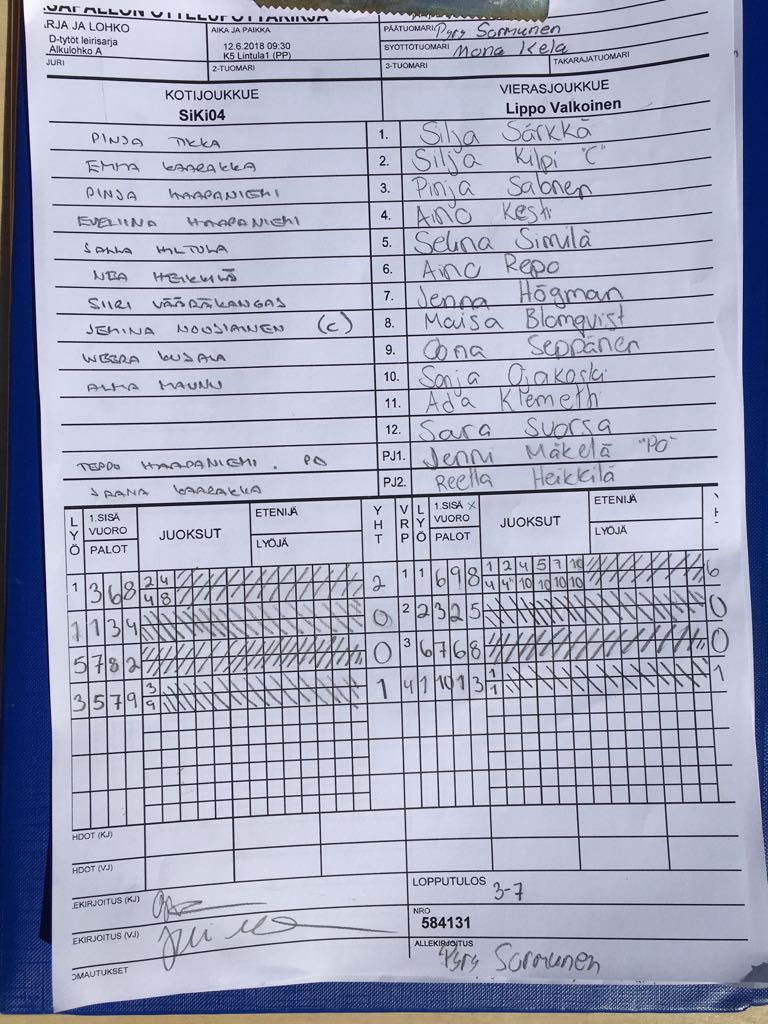 ARJA JA LOHKO
D-tytöt leirisarja
Alkulohko A
AIKA JA PAIKKA
12.6.2018 09:30
K5 Lintula1 (PP)
PÄÄTUOMARI Pyry Sormunen
SYÖTTÖTUOMARI Mona Kela
JURI 2-TUOMARI 3-TUOMARI TAKARAJATUOMARI
KOTIJOUKKUE VIERASJOUKKUE
SiKi04 Lippo Valkoinen
PINJA TIKKA 1. Silja Särkkä
EMMA KAARAKKA 2. Silja Kilpi "C"
PINJA HAAPANIEMI 3. Pinja Salonen
EVELIINA HAAPANIEMI 4. Aino Kesti
SANNA HILTULA 5. Selina Similä
NEA HEIKKILÄ 6. Aino Repo
SIIRI VÄÄRÄKANGAS 7. Jenna Högman
JEMINA NOUSIAINEN (C) 8. Maisa Blomqvist
WEERA KUJALA 9. Oona Seppänen
ALMA MAUNU 10. Sonja Ojakoski
11. Ada Klemetti
12. Sara Suorsa
TEPPO HAAPANIEMI. PO PJ1. Jenni Mäkelä "PO"
JAANA KAARAKKA PJ2. Reetta Heikkilä
LYÖ 1.SISÄ VUORO PALOT JUOKSUT ETENIJÄ LYÖJÄ YHT VRP LYÖ 1.SISÄ X VUORO PALOT JUOKSUT ETENIJÄ LYÖJÄ
1 3 6 8 2 4 2 1 1 6 9 8 1 2 4 5 7 10 6
4 8 4 4 10 10 10 10
1 1 3 4 0 2 2 3 2 5 0
5 7 8 2 0 3 6 7 6 8 0
3 5 7 9 3 1 4 1 10 1 3 1 1
9 1
HDOT (KJ)
HDOT (VJ)
LEKIRJOITUS (KJ) LOPPUTULOS 3-7
LEKIRJOITUS (VJ) NRO
584131
OMAUTUKSET ALLEKIRJOITUS Pyry Sormunen